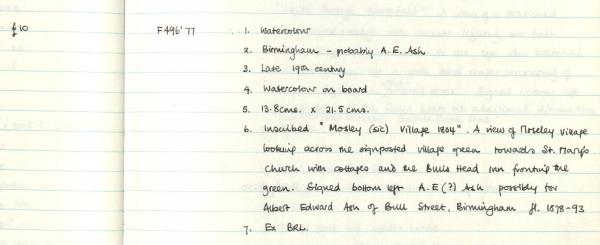 £10
F496'77
1. Watercolour
2. Birmingham - probably A.E. Ash
3. Late 19th century
4. Watercolour on board
5. 13.8cms. x 21.5cms.
6. Inscribed "Mosley (sic) Village 1804". A view of Moseley Village
looking across the signposted village green towards St. Mary's
Church with cottages and the Bulls Head Inn fronting the
green. Signed bottom left A.E(?) Ash possibly for
Albert Edward Ash of Bull Street, Birmingham fl. 1878-93
7. Ex BRL.